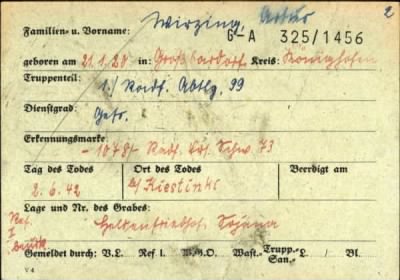 2
Familien- u. Vorname: Wirzing, Artur
G-A 325/1456
geboren am 21.1.20 in: Groß Bardorf Kreis: Königshofen
Truppenteil: 1./ Radf. Abtlg. 99
Dienstgrad: Gefr.
Erkennungsmarke:
- 1048 - Radf. Ers. Schw. 73
Tag des Todes Ort des Todes Beerdigt am
2.6.42 b/ Kiestinki
Lage und Nr. des Grabes:
Heldenfriedhof Sojana
Ref.
I
Gemeldet durch: V.L. Ref I. W.G.O. Wast.- Trupp.- San.- L. Bl.
V 4